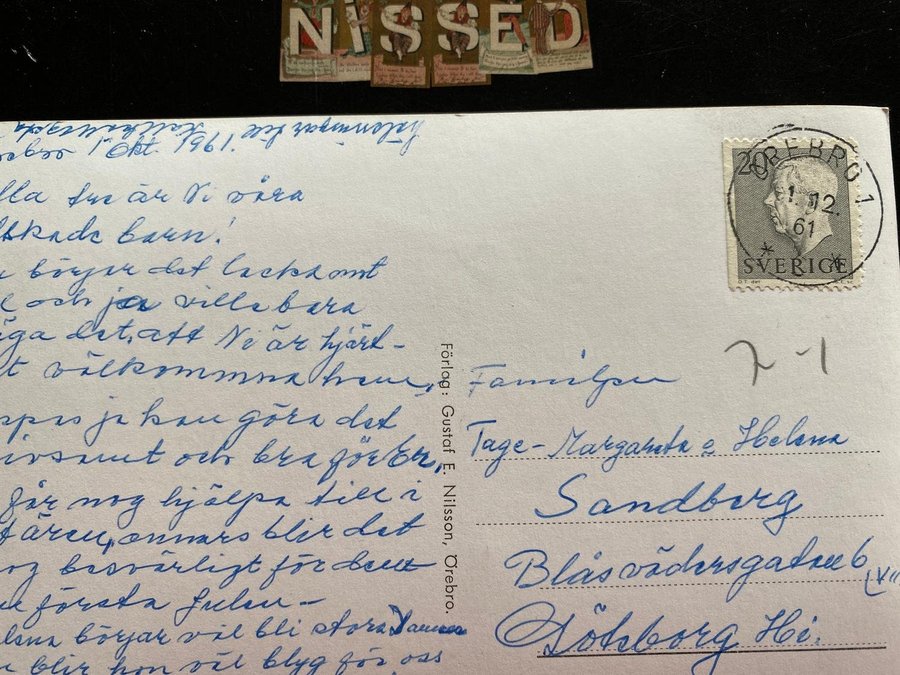 NiSSED
hälsningar till
1 Okt. 1961.
lla tre är Ni våra
lskade barn!
börjar det lacka mot
och ja ville bara
äga det, att Ni är hjärt-
t välkommna hem,
ppas ja kan göra det
ivsamt och bra för Er,
får nog hjälpa till i
annars blir det
og besvärligt för den
första Julen -
börjar väl bli stora
blir hon väl blyg för oss
Förlag: Gustaf E. Nilsson, Örebro.
20
SVERIGE
ÖREBRO 1
1. 12.
61
7-1
Familjen
Tage-Margareta o Helena
Sandberg
Blåsvädersgatan 6
Göteborg Hi.